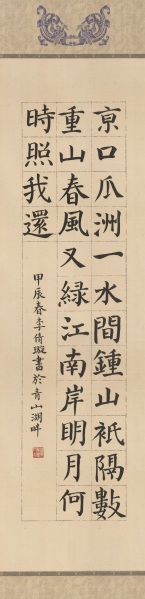 京口瓜洲一水間鍾山祇隔數
重山春風又綠江南岸明月何
時照我還
甲辰春李倚璇書於青山湖畔